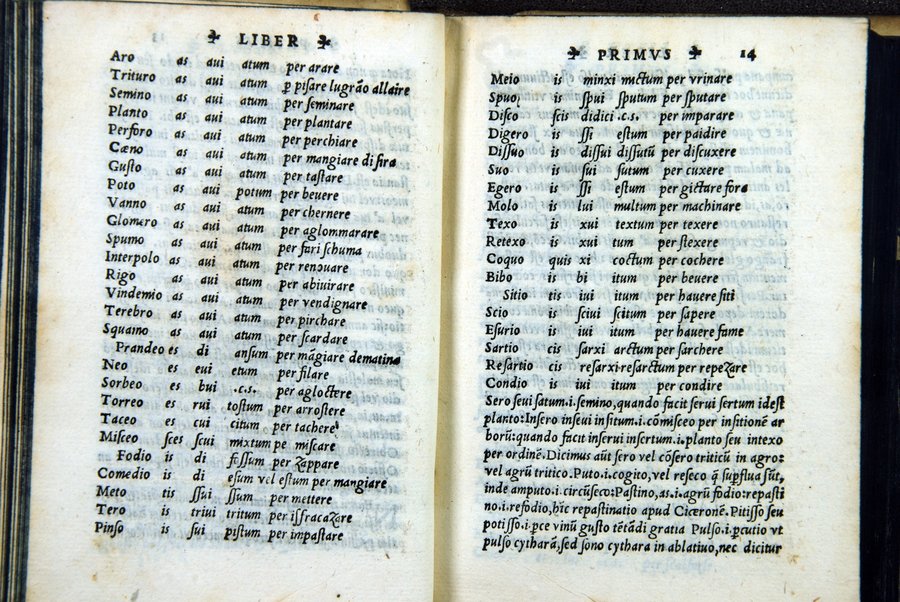 LIBER
Aro as aui atum per arare
Trituro as aui atum ꝑ pisare lugrāo allaire
Semino as aui atum per seminare
Planto as aui atum per plantare
Perforo as aui atum per perchiare
Cæno as aui atum per mangiare di sira
Gusto as aui atum per tastare
Poto as aui potum per beuere
Vanno as aui atum per chernere
Glomero as aui atum per aglommarare
Spumo as aui atum per fari schuma
Interpolo as aui atum per renouare
Rigo as aui atum per abiuirare
Vindemio as aui atum per vendignare
Terebro as aui atum per pirchare
Squamo as aui atum per scardare
Prandeo es di ansum per māgiare de matina
Neo es eui etum per filare
Sorbeo es bui .c.s. per agloctere
Torreo es rui tostum per arrostere
Taceo es cui citum per tachere
Misceo sces scui mixtum pe miscare
Fodio is di fossum per zappare
Comedio is di esum vel estum per mangiare
Meto tis ssui ssum per mettere
Tero is triui tritum per isfracazare
Pinso is sui pistum per impastare
PRIMVS 14
Meio is minxi mictum per vrinare
Spuo, is spui sputum per sputare
Disco scis didici .c.s. per imparare
Digero is ssi estum per paidire
Dissuo is dissui dissutū per discuxere
Suo is sui sutum per cuxere
Egero is ssi estum per gictare fora
Molo is lui multum per machinare
Texo is xui textum per texere
Retexo is xui tum per stexere
Coquo quis xi coctum per cochere
Bibo is bi itum per beuere
Sitio tis iui itum per hauere siti
Scio is sciui scitum per sapere
Esurio is iui itum per hauere fame
Sartio cis sarxi arctum per sarchere
Resartio cis resarxi-resarctum per repezare
Condio is iui itum per condire
Sero seui satum.i.semino, quando facit serui sertum idest
planto: Insero inseui insitum.i.comisceo per insitionē ar
borū: quando facit inserui insertum.i.planto seu intexo
per ordinē. Dicimus aūt sero vel cōsero triticū in agro:
vel agrū tritico. Puto.i.cogito, vel reseco q̄ suꝑflua sūt,
inde amputo.i.circūseco: Pastino, as.i.agrū fodio: repasti
no.i.refodio, hīc repastinatio apud Ciceronē. Pitisso seu
potisso.i.pce vinū gusto tētādi gratia Pulso.i.ꝑcutio vt
pulso cytharā, sed sono cythara in ablatiuo, nec dicitur